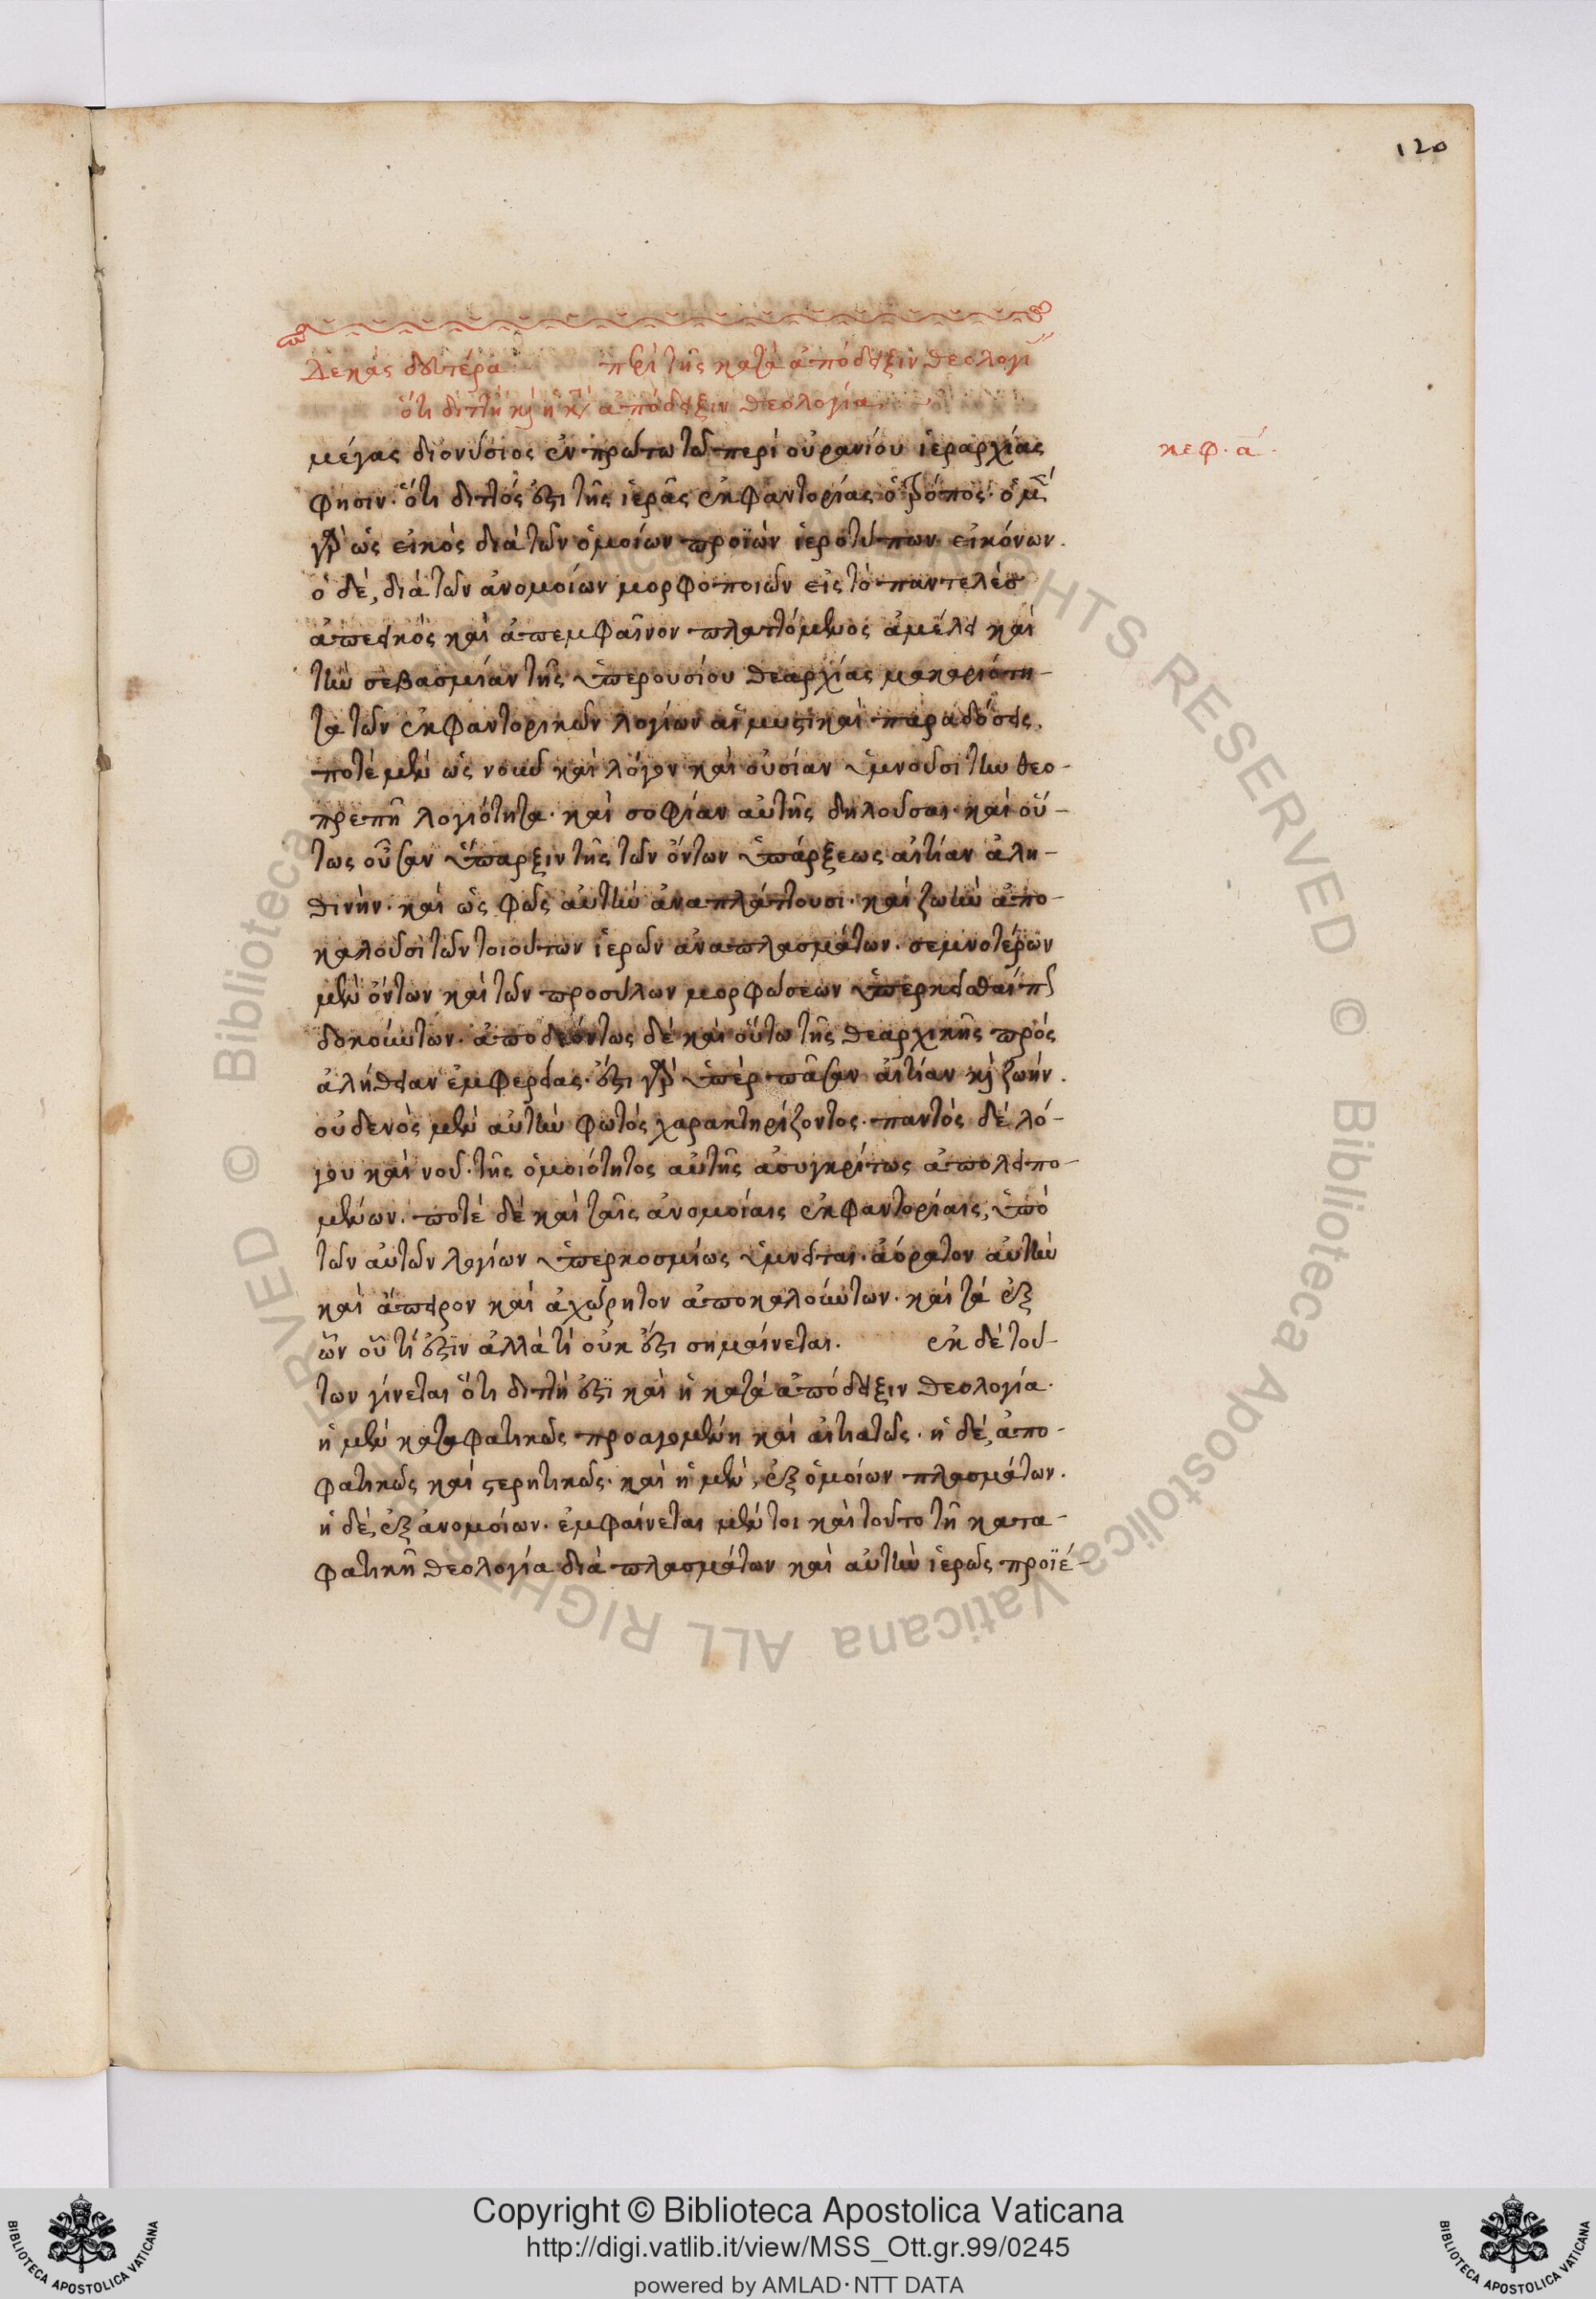 120
Δεκὰς δευτέρα περὶ τῆς κατὰ ἀπόδειξιν θεολογί
ὅτι διττὴ κ(αὶ) ἡ κ(α)τ(ὰ) ἀπόδειξιν θεολογία.
μέγας διονύσιος ἐν πρώτω τῶ περὶ οὐρανίου ἱεραρχίας
κεφ. α΄.
φησιν. ὅτι διττός ἐστι τῆς ἱερᾶς ἐκφαντορίας ὁ τρόπος. ὁ μὲ(ν)
γὰρ ὡς εἰκὸς διὰ τῶν ὁμοίων προϊὼν ἱεροτύπων εἰκόνων.
ὁ δὲ, διὰ τῶν ἀνομοίων μορφοποιῶν εἰς τὸ παντελὲσ
ἀπεικὸς καὶ ἀπεμφαῖνον πλαττόμενος ἀμέλει καὶ
τὴν σεβασμίαν τῆς ὑπερουσίου θεαρχίας μακαριότη-
τα τῶν ἐκφαντορικῶν λογίων αἱ μυστικαὶ παραδόσεις.
ποτὲ μὲν ὡς νοῦν καὶ λόγον καὶ οὐσίαν ὑμνοῦσι τὴν θεο-
πρεπῆ λογιότητα. καὶ σοφίαν αὐτῆς δηλοῦσαι. καὶ οὕ-
τως οὖσαν ὕπαρξιν τῆς τῶν ὄντων ὑπάρξεως αἰτίαν ἀλη-
θινήν. καὶ ὡς φῶς αὐτὴν ἀναπλάττουσι. καὶ ζωὴν ἀπο-
καλοῦσι τῶν τοιούτων ἱερῶν ἀναπλασμάτων. σεμνοτέρων
μὲν ὄντων καὶ τῶν προσύλων μορφώσεων ὑπερκεῖσθαί π(ως)
δοκούντων. ἀποδεόντως δὲ καὶ οὕτω τῆς θεαρχικῆς πρὸς
ἀλήθειαν ἐμφερείας. ἔστι γὰρ ὑπὲρ πᾶσαν αἰτίαν κ(αὶ) ζωήν.
οὐδενὸς μὲν αὐτὴν φωτὸς χαρακτηρίζοντος. παντὸς δὲ λό-
γου καὶ νοῦ. τῆς ὁμοιότητος αὐτῆς ἀσυγκρίτως ἀπολειπο-
μένων. ποτὲ δὲ καὶ ταῖς ἀνομοίαις ἐκφαντορίαις, ὑπὸ
τῶν αὐτῶν λογίων ὑπερκοσμίως ὑμνεῖται. ἀόρατον αὐτὴν
καὶ ἄπειρον καὶ ἀχώρητον ἀποκαλούντων. καὶ τὰ ἐξ
ὧν οὔ τί ἐστιν ἀλλὰ τί οὐκ ἔστι σημαίνεται. ἐκ δὲ τού-
των γίνεται ὅτι διττή ἐστι καὶ ἡ κατὰ ἀπόδειξιν θεολογία.
ἡ μὲν καταφατικῶς προαγομένη καὶ αἰτιατῶς. ἡ δὲ, ἀπο-
φατικῶς καὶ στερητικῶς. καὶ ἡ μὲν, ἐξ ὁμοίων πλασμάτων.
ἡ δὲ, ἐξ ἀνομοίων. ἐμφαίνεται μέντοι καὶ τοῦτο τῆ κατα-
φατικῆ θεολογία διὰ πλασμάτων καὶ αὐτὴν ἱερῶς προϊέ-
Copyright © Biblioteca Apostolica Vaticana
http://digi.vatlib.it/view/MSS_Ott.gr.99/0245
powered by AMLAD·NTT DATA